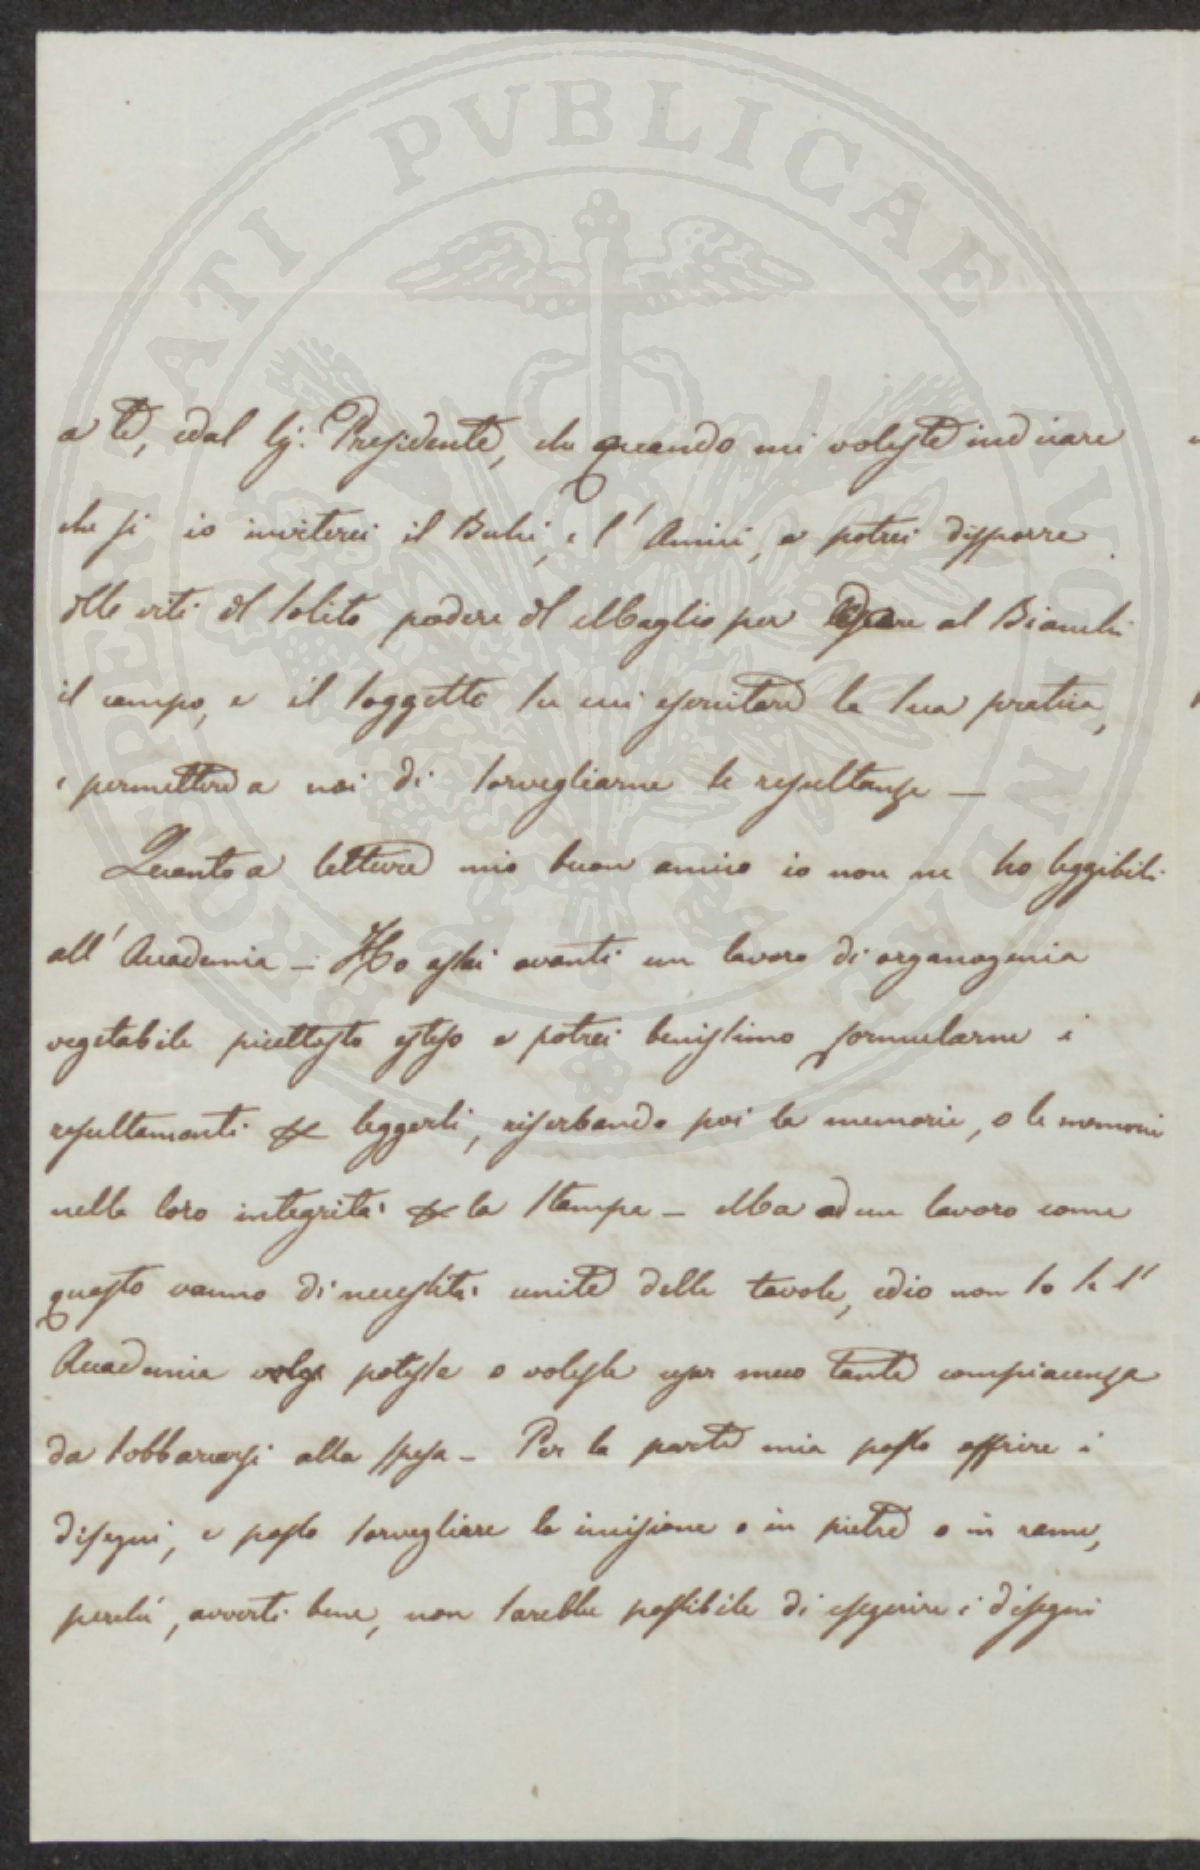 PROSPERITATI PVBLICAE AVGENDAE
a te, edal Sig. Presidente, che quando mi voleste indicare
che si io inviterei il Bechi, e l'Amici, e potrei disporre
delle viti del solito podere del Maglio per al Bianchi
il campo, e il soggetto su cui esercitare la sua pratica,
e permettere a noi di sorvegliarne le resultanze —
Quanto a letture mio buon amico io non ne ho leggibili
all'Accademia — Ho assai avanti un lavoro di organogenia
vegetabile piuttosto esteso e potrei benissimo formularne i
resultamenti per leggerli, riserbando poi la memoria, o le memorie
nelle loro integrità per la stampa — Ma ad un lavoro come
questo vanno di necessità unite delle tavole, edio non so se l'
Accademia potesse o volesse usar meco tanta compiacenza
da sobbarcarsi alla spesa — Per la parte mia posso offrire i
disegni, e posso sorvegliare la incisione o in pietra o in rame,
perché, avverti bene, non sarebbe possibile di eseguire i disegni